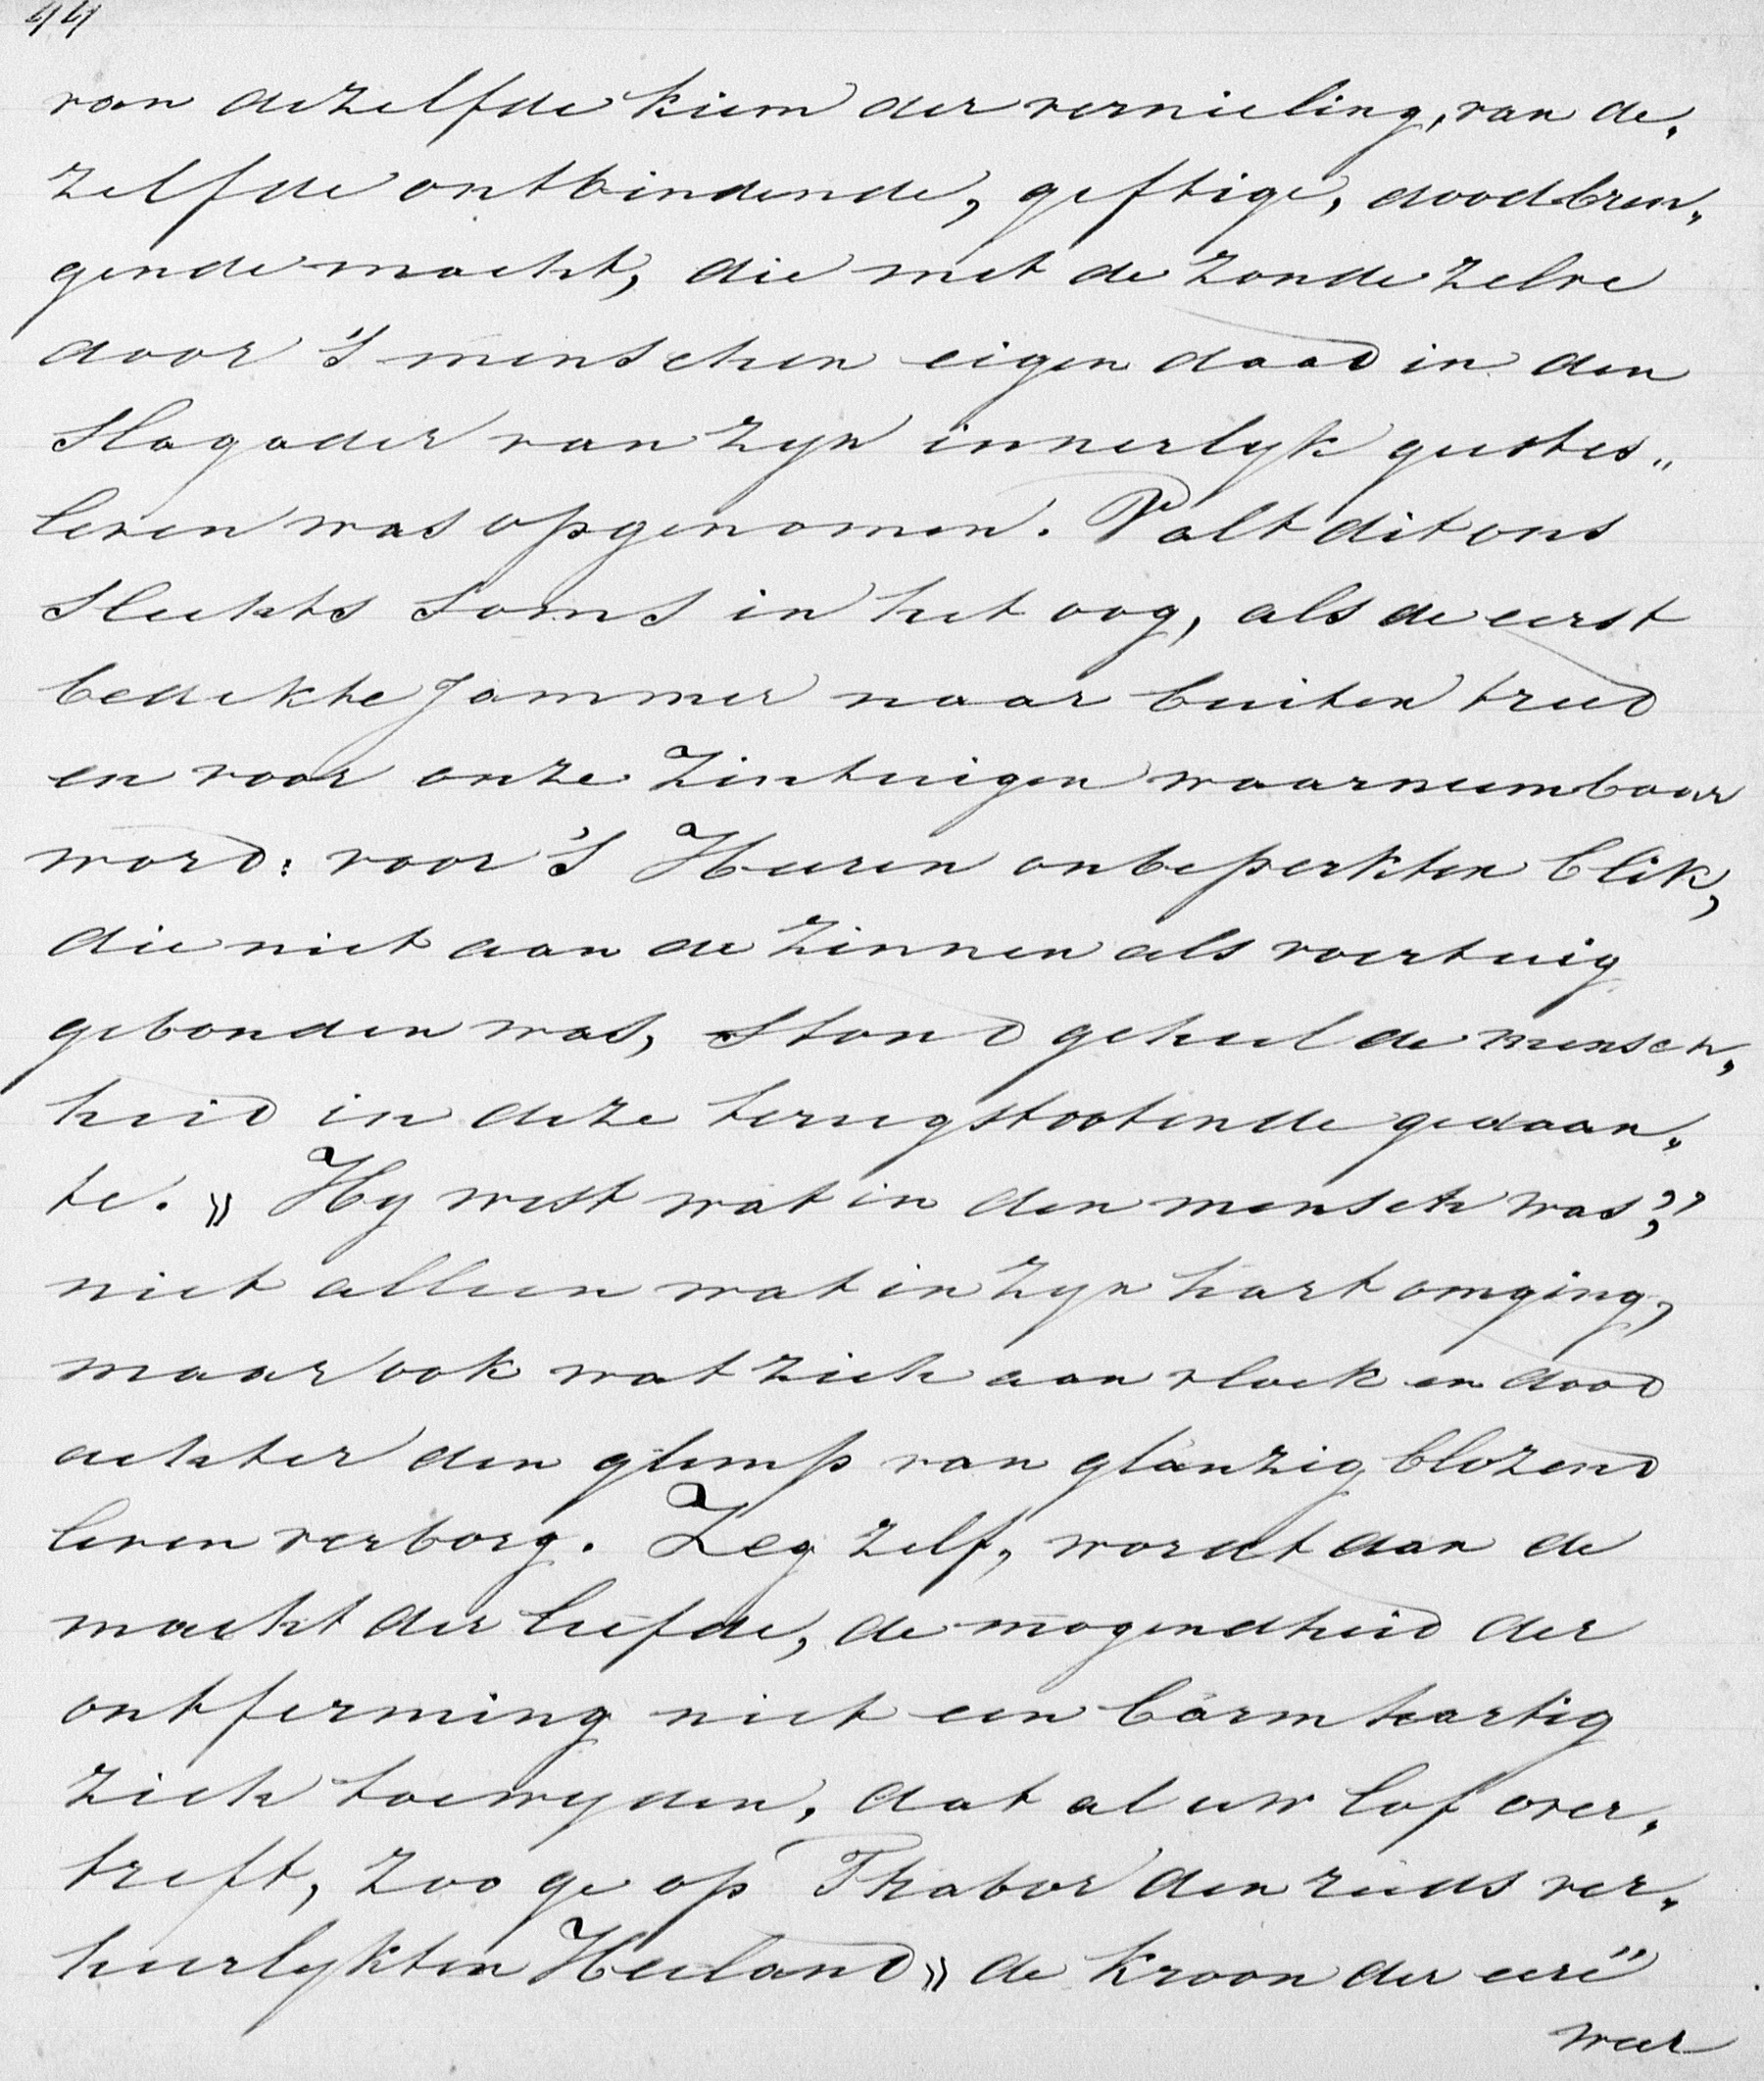 44
van dezelfde kiem der vernieling, van de„
zelfde ontbindende, giftige, doodbren„
gende macht, die met de zonde zelve
door 's menschen eigen daad in den
slagader van zyn innerlyk geestes„
leven was opgenomen. Valt dit ons
slechts soms in het oog, als de eerst
bedekte jammer naar buiten treed
en voor onze zintuigen waarneembaar
word: voor 's Heeren onbeperkten blik,
die niet aan de zinnen als voertuig
gebonden was, stond geheel de mensch„
heid in deze terugstootende gedaan„
te. „Hy wist wat in den mensch was,"
niet alleen wat in zyn hart omging,
maar ook wat zich aan vloek en dood
achter den glimp van glanzig blozend
leven verborg. Zeg zelf, wordt dan de
macht der liefde, de mogendheid der
ontferming niet een barmhartig
zich toewyden, dat al uw lof over„
treft, zoo ge op Thabor den reeds ver„
heerlykten Heiland „de kroon der eere"
weer